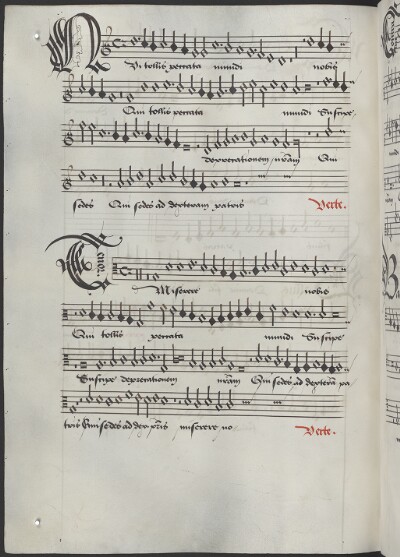 Qui tollis peccata mundi nobis
Qui tollis peccata mundi Suscipe
deprecationem nr̄am Qui
sedes Qui sedes ad dexteram patris Verte.
Tenor
Miserere nobis
Qui tollis peccata mundi Suscipe
Suscipe deprecationem nr̄am Qui sedes ad dexterā pa
tris Qui sedes ad dex pr̄is miserere no Verte.